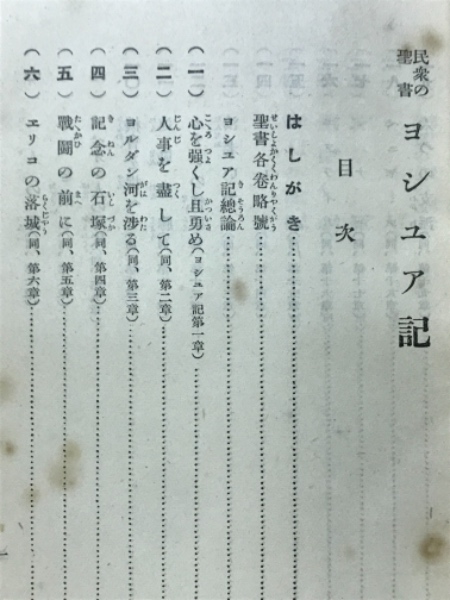 民衆の聖書 ヨシユア記
目次
はしがき
聖書各卷略號
ヨシユア記總論
(一) 心を强くし且勇め(ヨシユア記第一章)
(二) 人事を盡して(同、第二章)
(三) ヨルダン河を渉る(同、第三章)
(四) 記念の石塚(同、第四章)
(五) 戰鬪の前に(同、第五章)
(六) エリコの落城(同、第六章)